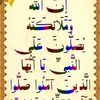 إن الله
وملائكته
يصلون على
النبي يا أيها
الذين آمنوا صلوا